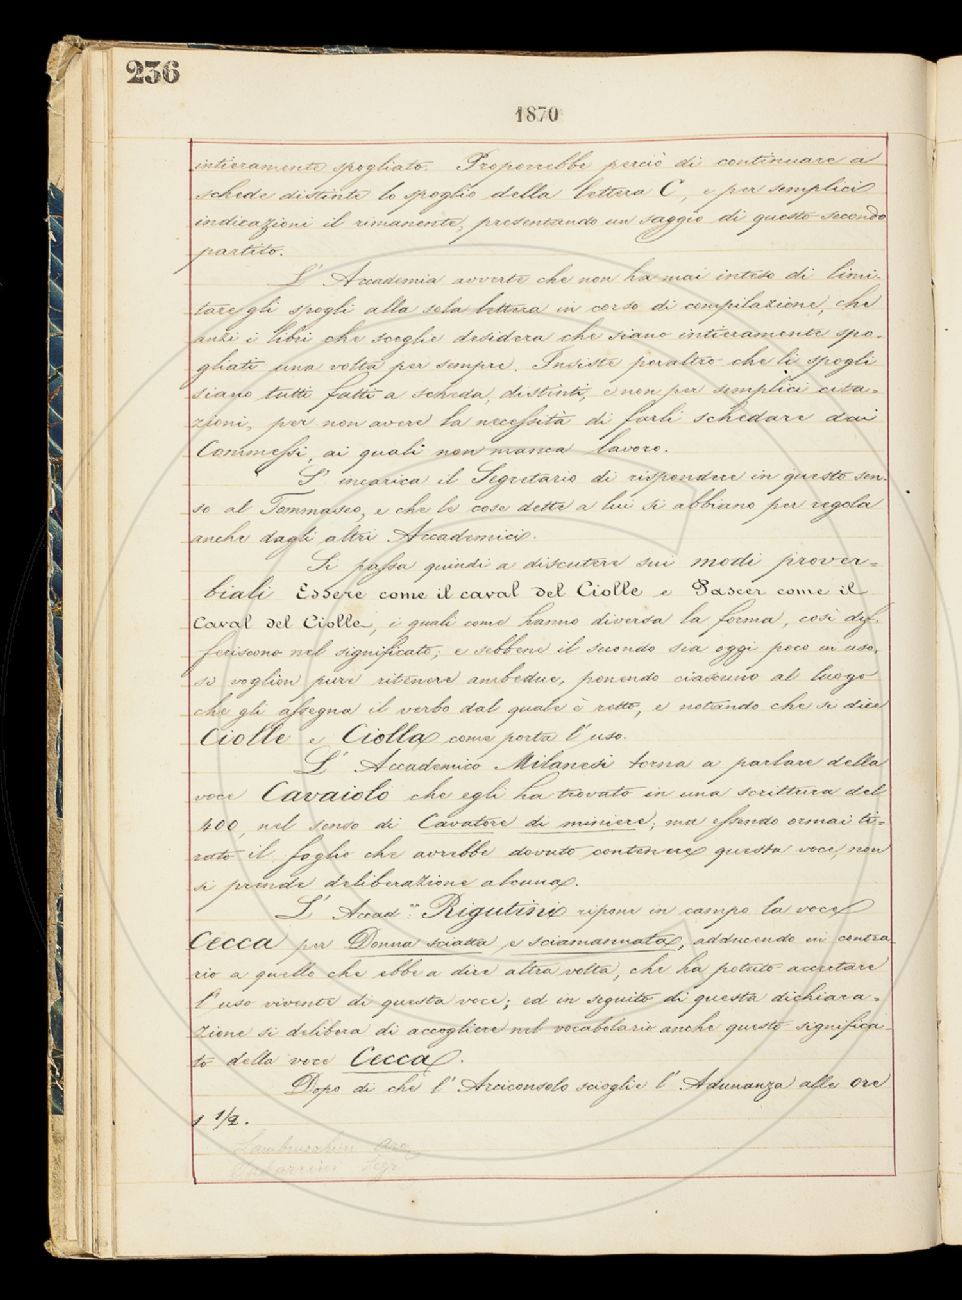 236
1870
intieramente spogliato. Proporrebbe perciò di continuare a
schede distinte lo spoglio della lettera C, e per semplici
indicazioni il rimanente, presentando un saggio di questo secondo
partito.
L' Accademia avverte che non ha mai inteso di limi-
tare gli spogli alla sola lettera in corso di compilazione, che
anzi i libri che sceglie desidera che siano intieramente spo-
gliati una volta per sempre. Insiste peraltro che li spogli
siano tutti fatti a scheda, distinti, e non per semplici cita=
zioni, per non avere la necessità di farli schedare dai
Commessi, ai quali non manca lavoro.
S' incarica il Segretario di rispondere in questo sen-
so al Tommaseo, e che le cose dette a lui si abbiano per regola
anche dagli altri Accademici.
Si passa quindi a discutere sui modi prover=
biali Essere come il caval del Ciolle e Pascer come il
Caval del Ciolle, i quali come hanno diversa la forma, così dif-
feriscono nel significato; e sebbene il secondo sia oggi poco in uso,
si voglion pure ritenere ambedue, ponendo ciascuno al luogo
che gli assegna il verbo dal quale è retto, e notando che si dice
Ciolle e Ciolla come porta l'uso.
L' Accademico Milanesi torna a parlare della
voce Cavaiolo che egli ha trovato in una scrittura del
400, nel senso di Cavatore di miniere; ma essendo ormai ti=
rato il foglio che avrebbe dovuto contenere questa voce, non
si prende deliberazione alcuna.
L' Accad.co Rigutini ripone in campo la voce
Cecca per Donna sciatta e sciamannata, adducendo in contra
rio a quello che ebbe a dire altra volta, che ha potuto accertare
l'uso vivente di questa voce; ed in seguito di questa dichiara=
zione si delibera di accogliere nel vocabolario anche questo significa-
to della voce Cecca.
Dopo di che l' Arciconsolo scioglie l' Adunanza alle ore
1 1/2.
Lambruschini Arc.
Tabarrini Segr.